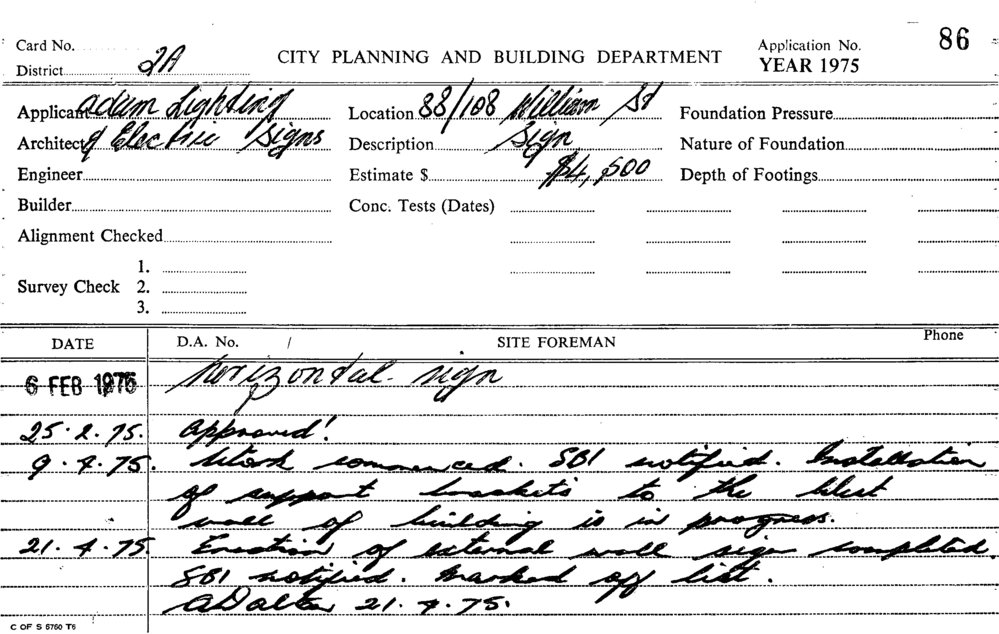 86
Card No.
Application No.
District 2A
CITY PLANNING AND BUILDING DEPARTMENT
YEAR 1975
Applicant Adam Lighting
Location 88/108 William St
Foundation Pressure
Architect & Electric Signs
Description Sign
Nature of Foundation
Engineer
Estimate $ $4,500
Depth of Footings
Builder
Conc. Tests (Dates)
Alignment Checked
1.
Survey Check 2.
3.
DATE D.A. No. / SITE FOREMAN Phone
6 FEB 1975 Horizontal sign
25.2.75. Approved!
9.4.75. Work commenced. SBI notified. Installation
of support brackets to the West
wall of building is in progress.
21.4.75. Erection of external wall sign completed.
SBI notified. Marked off list.
ADalton 21.4.75.
C OF S 5750 T6